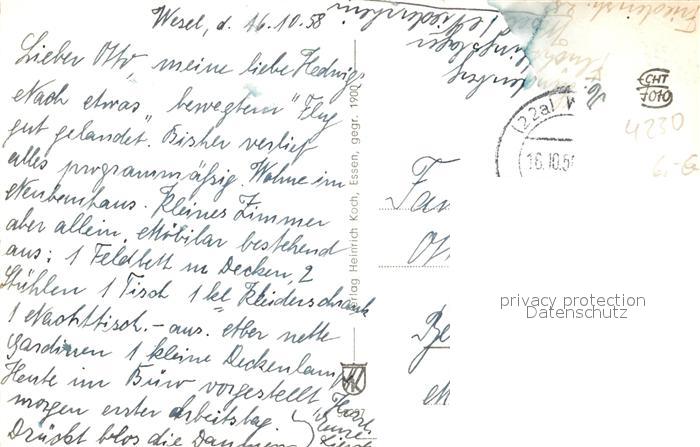 Wesel, d. 16.10.58
Lieber Otto, meine liebe Hedwig
Nach etwas bewegtem "Flug
gut gelandet". Bisher verlief
alles programmäßig. Wohne im
Neubauhaus. Kleines Zimmer
aber allein. Mobilar bestehend
aus: 1 Feldbett m Decken, 2
Stühlen 1 Tisch 1 kl Kleiderschrank
1 Nachttisch. - aus. Aber nette
Gardinen 1 kleine Deckenlamp
Heute im Büro vorgestellt
morgen erster Arbeitstag.
Drückt blos die Daumen
Verlag Heinrich Koch, Essen, gegr. 1900
HK
Niederrhein
(22a)
16.10.5
ECHT
Foto
4230
Fam
Ott
Be
privacy protection
Datenschutz